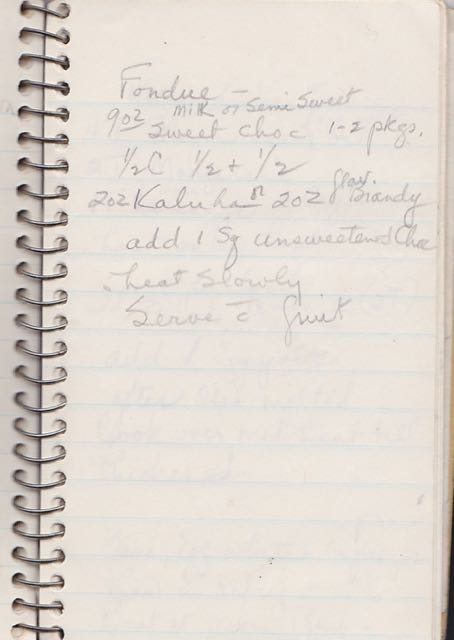 Fondue -
Milk or Semi Sweet
9oz Sweet Choc 1-2 pkgs.
½C ½ + ½
flav.
2oz Kaluha or 2oz Brandy
add 1 Sq unsweetened Choc
heat slowly
Serve c̄ fruit